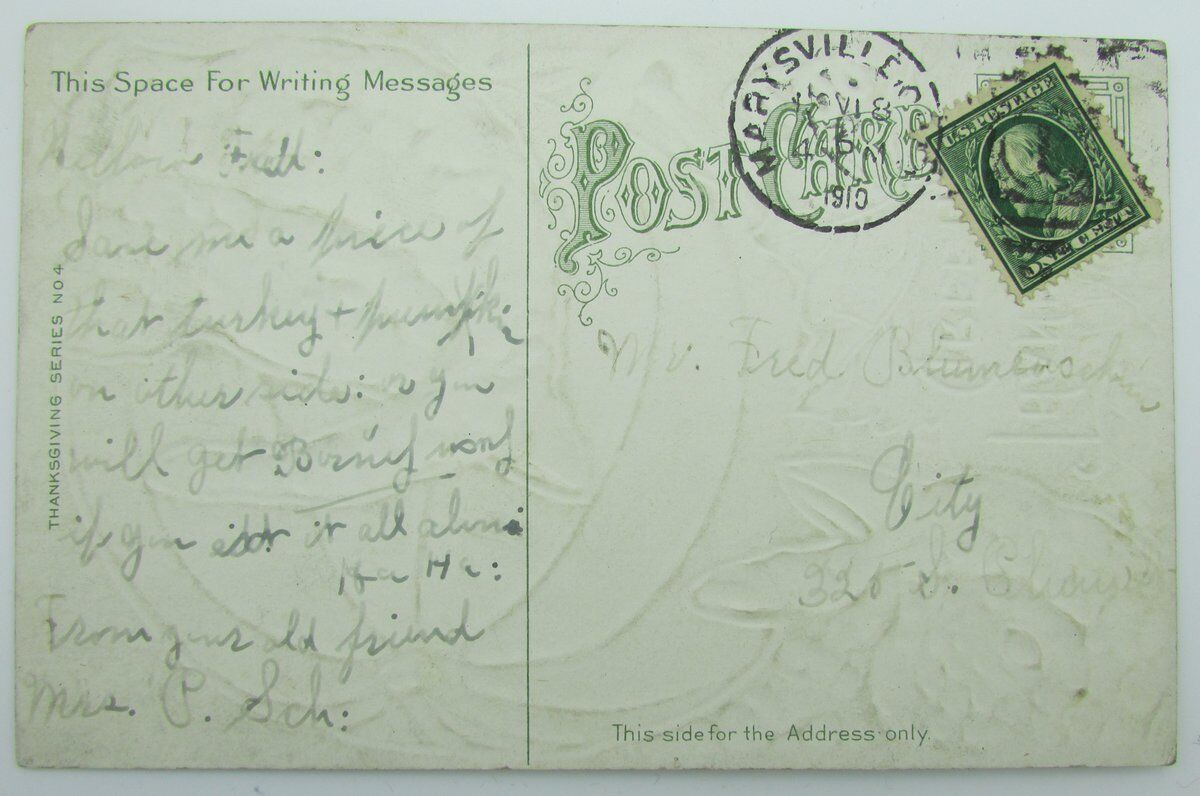 This Space For Writing Messages
Hellow Fred:
Save me a piece of
that turkey + pumpkin
on other side: or you
will get
if you eat it all alone
Ha Ha:
From your old friend
Mrs. P. Sch:
THANKSGIVING SERIES NO 4
POST CARD
MARYSVILLE, O
NOV 18
4
1910
U.S. POSTAGE
ONE CENT
Mr. Fred
City
S.
This side for the Address only.